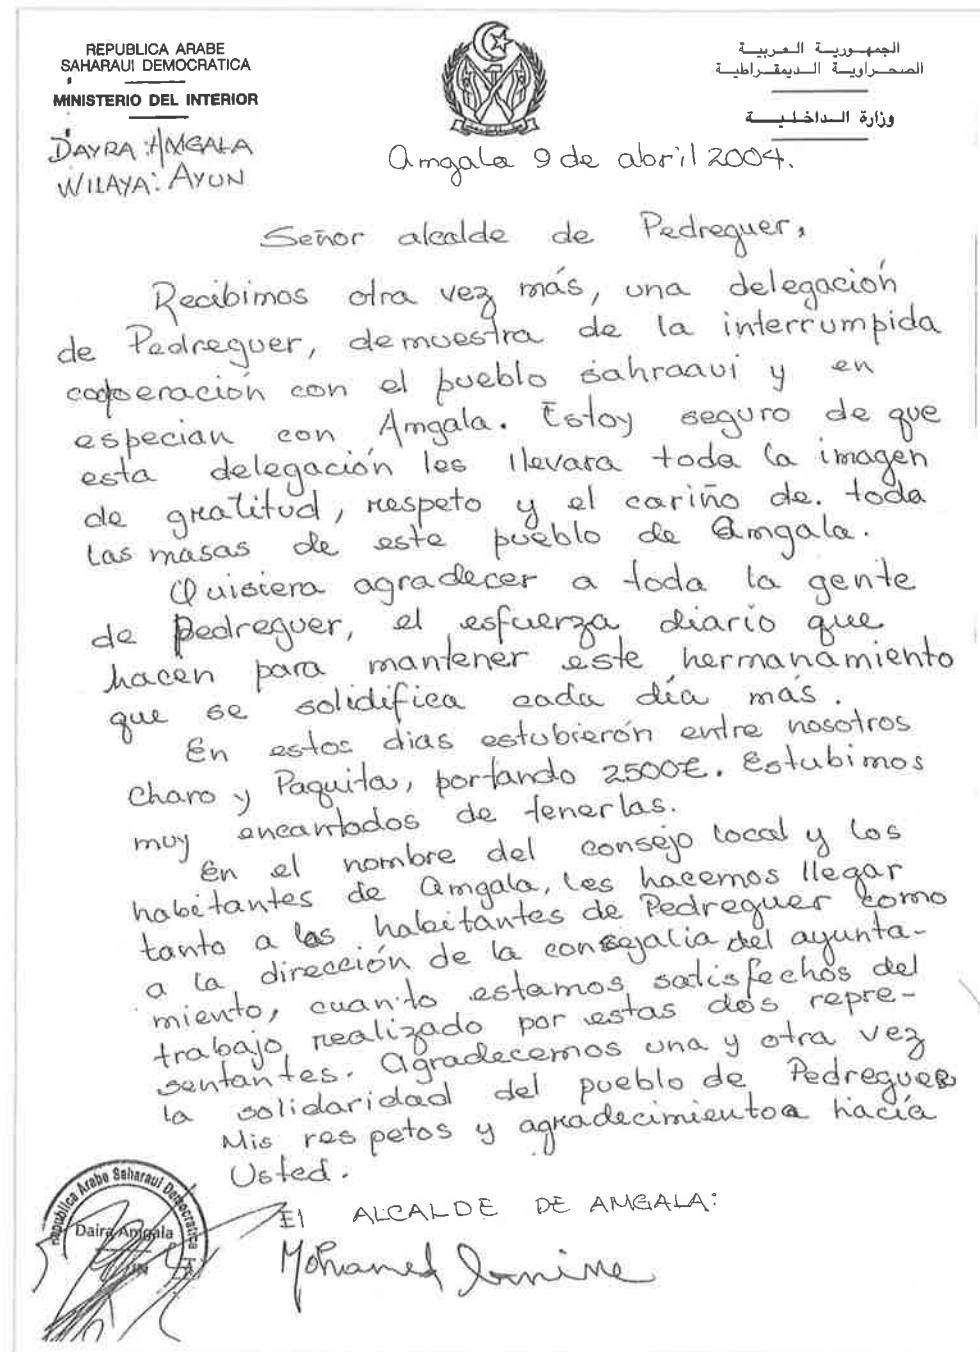 REPUBLICA ARABE
SAHARAUI DEMOCRATICA
MINISTERIO DEL INTERIOR
الجمهورية العربية
الصحراوية الديمقراطية
وزارة الداخلية
DAYRA: AMGALA
WILAYA: AYUN
Amgala 9 de abril 2004.
Señor alcalde de Pedreguer,
Recibimos otra vez más, una delegación
de Pedreguer, demuestra de la interrumpida
cooperación con el pueblo sahraaui y en
especian con Amgala. Estoy seguro de que
esta delegación les llevara toda la imagen
de gratitud, respeto y el cariño de. toda
las masas de este pueblo de Amgala.
Quisiera agradecer a toda la gente
de Pedreguer, el esfuerza diario que
hacen para mantener este hermanamiento
que se solidifica cada día más.
En estos dias estubierón entre nosotros
Charo y Paquita, portando 2500€. Estubimos
muy encantados de tenerlas.
En el nombre del consejo local y los
habitantes de Amgala, les hacemos llegar
tanto a los habitantes de Pedreguer como
a la dirección de la consejalia del ayunta-
miento, cuanto estamos satisfechos del
trabajo realizado por estas dos repre-
sentantes. Agradecemos una y otra vez
la solidaridad del pueblo de Pedreguer
Mis respetos y agradecimientos hacía
Usted.
El ALCALDE DE AMGALA:
Mohamed Lamine
Republica Arabe Saharaui Democratica
Daira Amgala